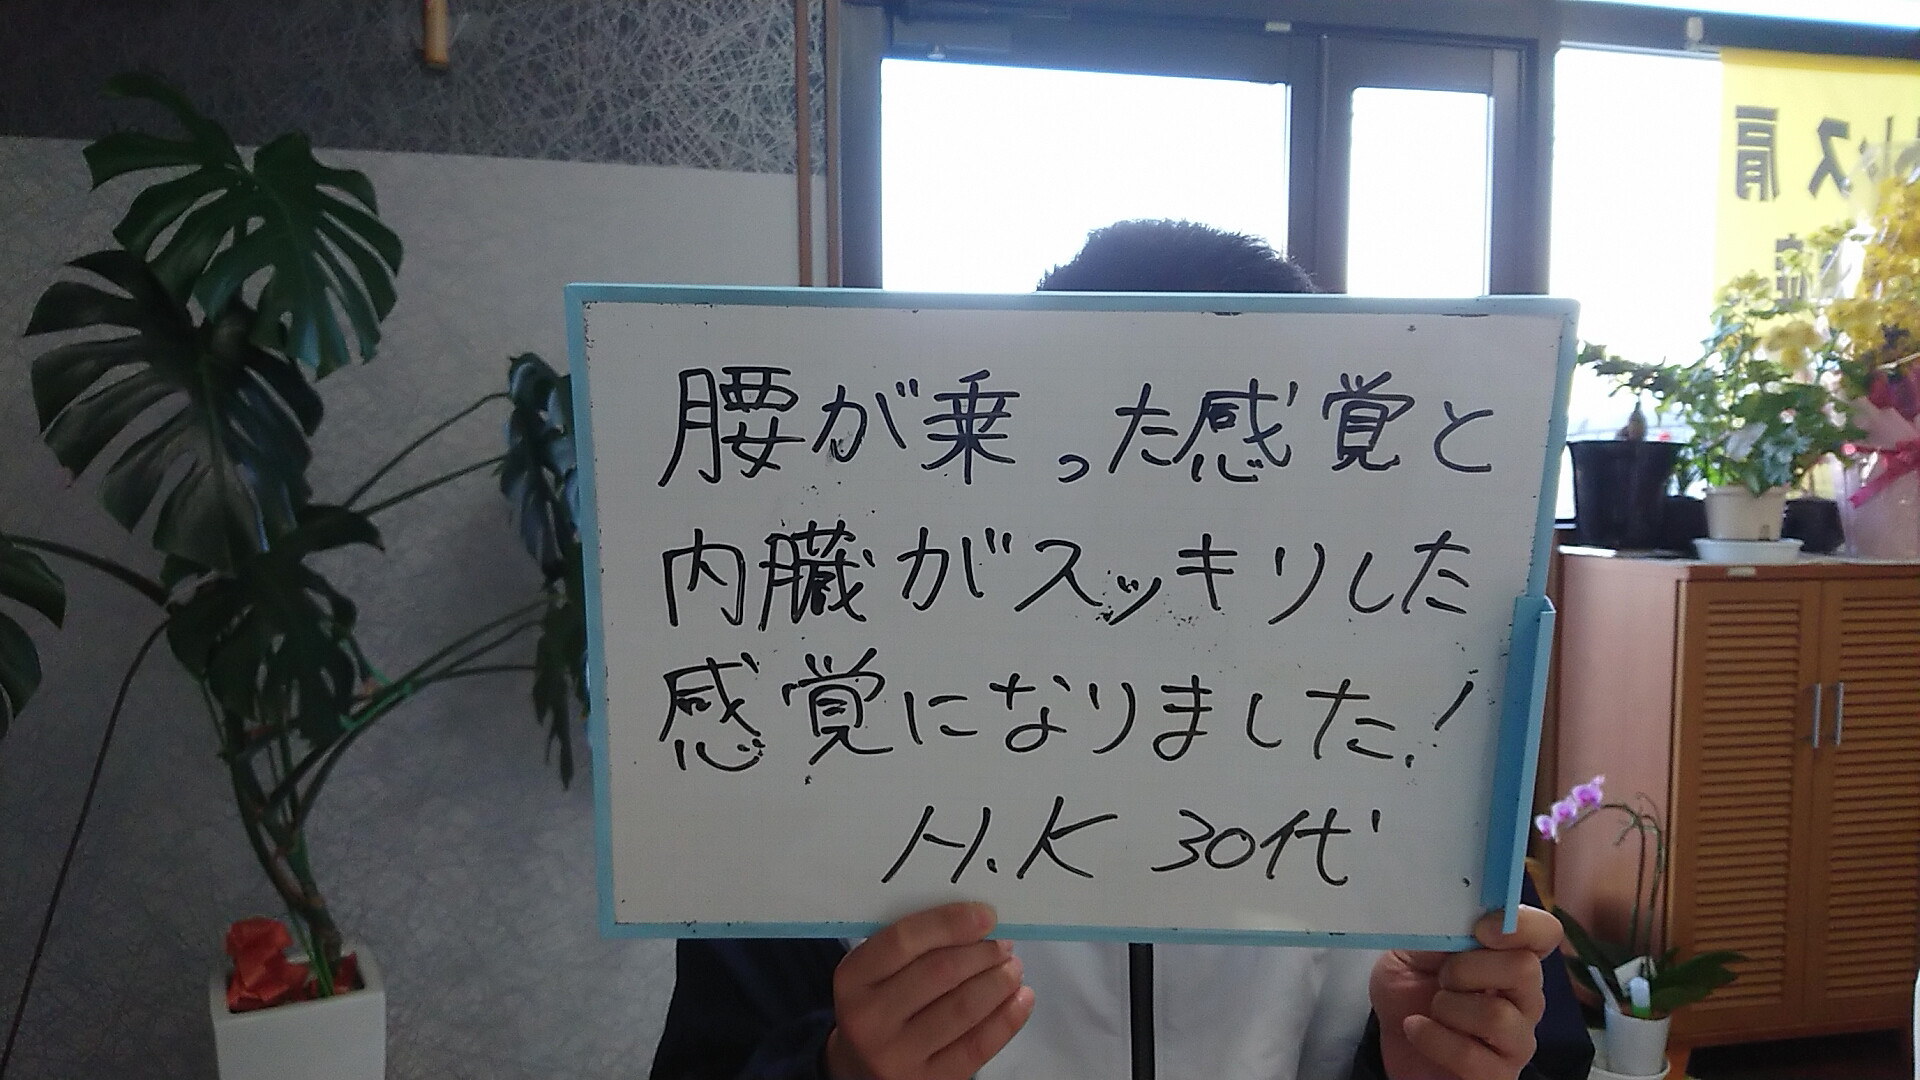 腰が乗った感覚と
内臓がスッキリした
感覚になりました!
H.K 30代
肩